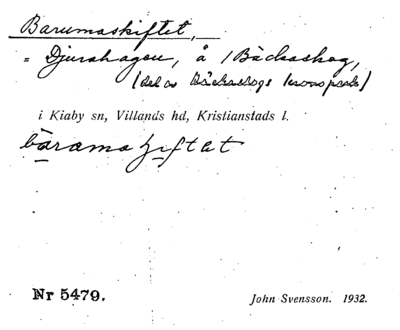 Barumaskiftet,
= Djurahagen, å /Bäckaskog,
(del av Bäckaskogs kronopark)
i Kiaby sn, Villands hd, Kristianstads l.
båramaʃiftət
Nr 5479.
John Svensson. 1932.